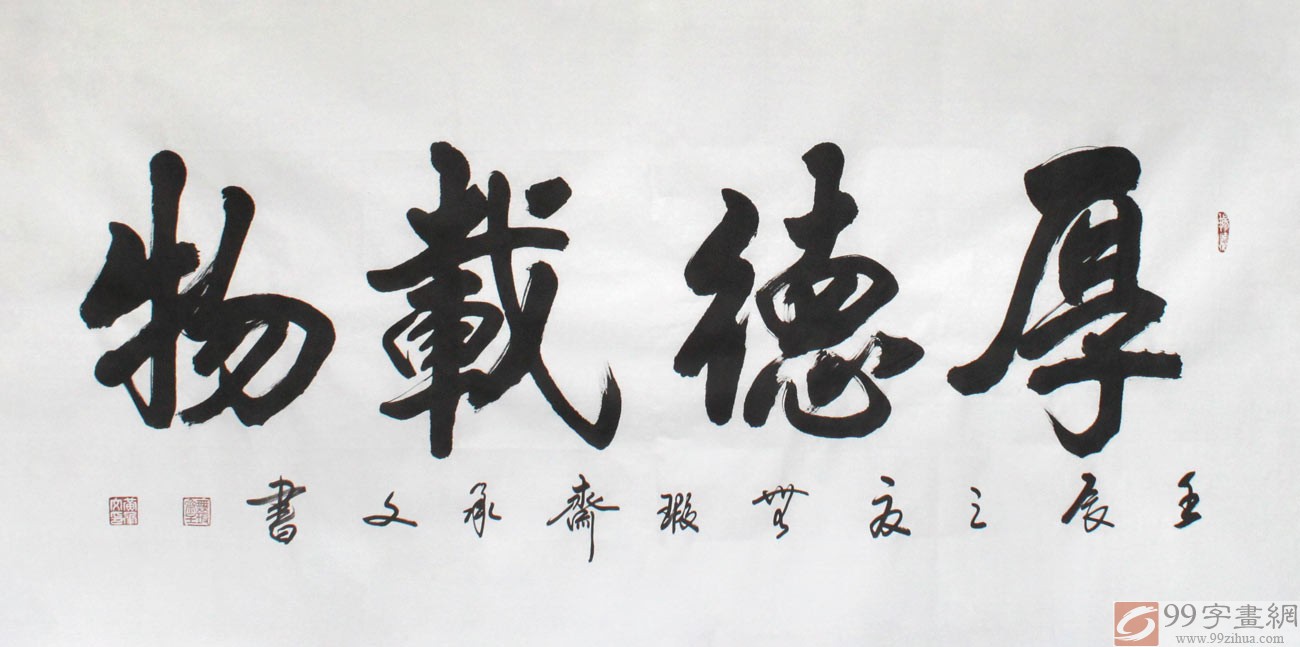 厚德載物
壬辰之夏無瑕齋承文書
99字畫網
www.99zihua.com